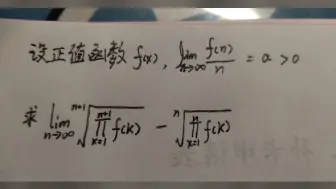 设正值函数 f(x), lim_{n→∞} f(n)/n = a > 0
求 lim_{n→∞} \sqrt[n+1]{∏_{k=1}^{n+1} f(k)} − \sqrt[n]{∏_{k=1}^{n} f(k)}